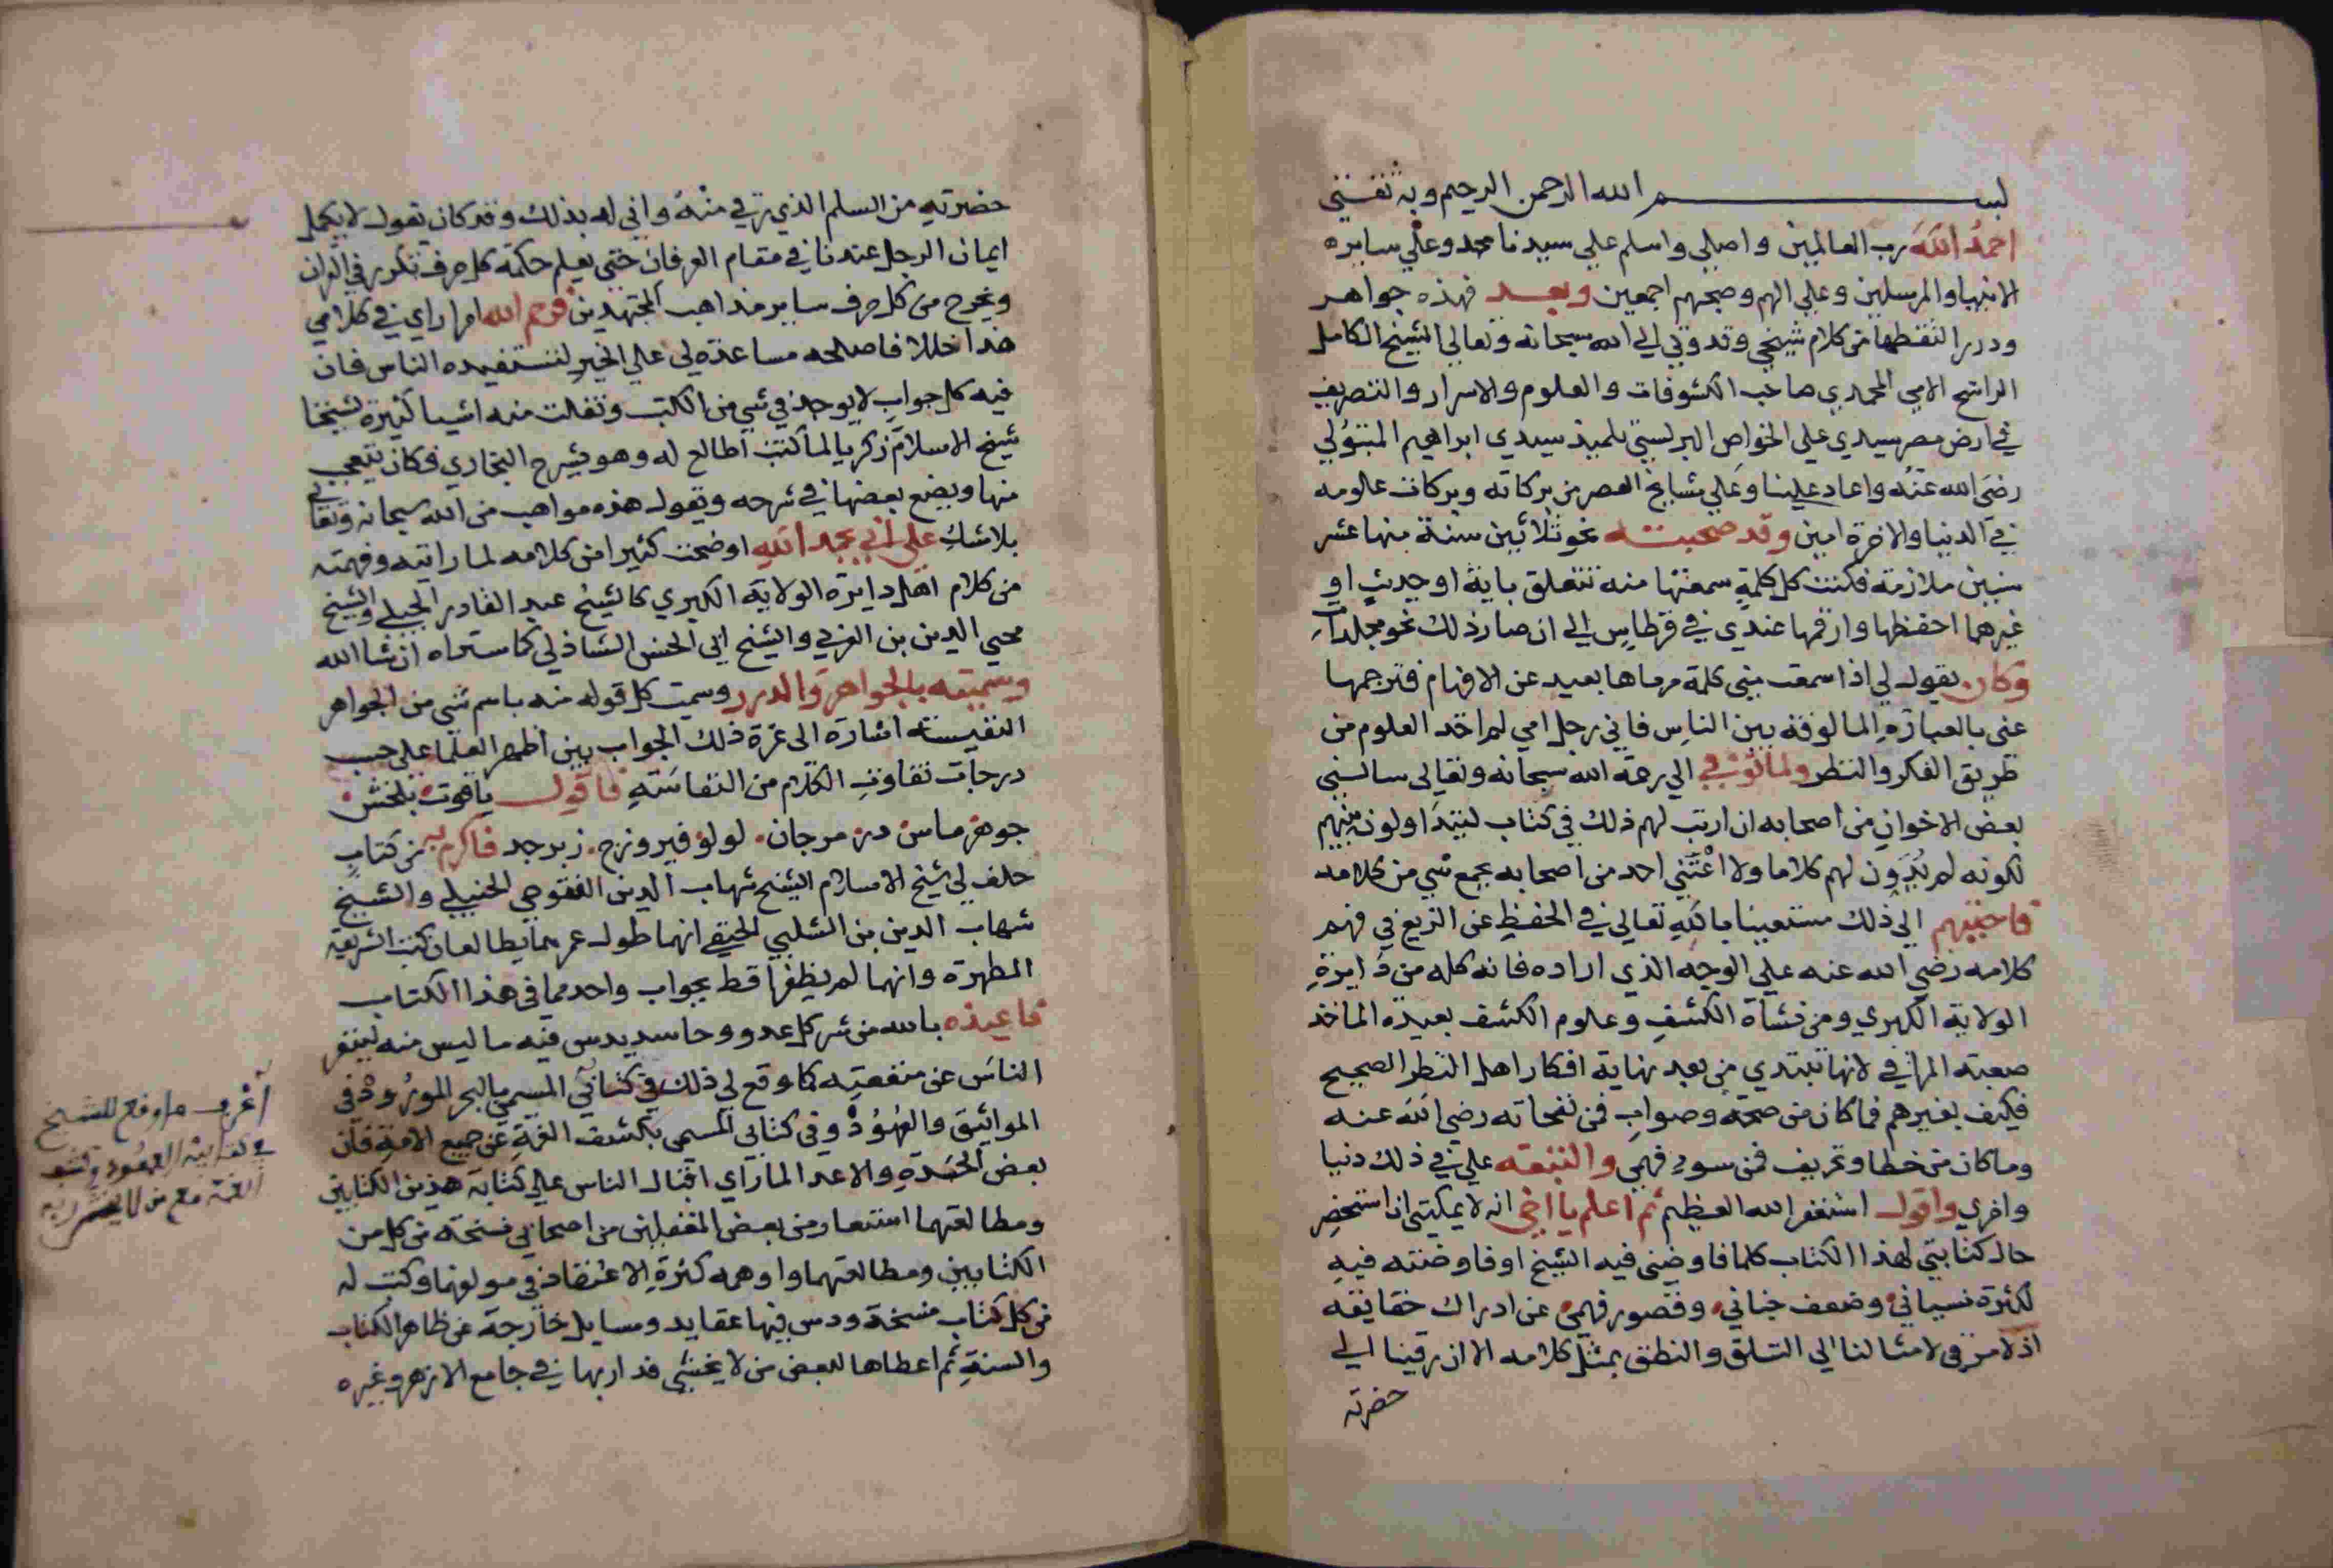 بسم الله الرحمن الرحيم وبه ثقتي
احمد الله رب العالمين واصلي واسلم علي سيدنا محمد وعلي ساير
الانبيا والمرسلين وعلي الهم وصحبهم اجمعين وبعد فهذه جواهر
ودرر التقطها من كلام شيخي وقدوتي الي الله سبحانه وتعالي الشيخ الكامل
الراسخ الامي المحمدي صاحب الكشوفات والعلوم والاسرار والتصريف
في ارض مصر سيدي علي الخواص البرلسي تلميذ سيدي ابراهيم المتبولي
رضي الله عنه واعاد علينا وعلي مشايخ العصر من بركاته وبركات علومه
في الدنيا والاخرة امين وقد صحبته نحو ثلاثين سنة منها عشر
سنين ملازمة فكنت كل كلمة سمعتها منه تتعلق باية او حديث او
غيرهما احفظها وارقمها عندي في قرطاس الي ان صار ذلك نحو مجلدات
وكان يقول لي اذا سمعت مني كلمة مرماها بعيد عن الافهام فترجمها
عني بالعبارة المالوفة بين الناس فاني رجل امي لم اخذ العلوم من
طريق الفكر والنظر ولما توفي الي رحمة الله سبحانه وتعالي سالني
بعض الاخوان من اصحابه ان ارتب لهم ذلك في كتاب ليتداولونه بينهم
لكونه لم يدون لهم كلاما ولا اعتني احد من اصحابه بجمع شي من كلامه
فاجبتهم الي ذلك مستعينا بالله تعالي في الحفظ عن الزيغ في فهم
كلامه رضي الله عنه علي الوجه الذي اراده فانه كله من دايرة
الولاية الكبري ومن نشاة الكشف وعلوم الكشف بعيدة الماخذ
صعبة المراقي لانها تبتدي من بعد نهاية افكار اهل النظر الصحيح
فكيف بغيرهم فما كان من صحة وصواب فمن نفحاته رضي الله عنه
وما كان من خطا وتحريف فمن سوء فهمي والتبعة علي في ذلك دنيا
واخري واقول استغفر الله العظيم ثم اعلم يا اخي انه لا يمكنني ان استحضر
حال كتابتي لهذا الكتاب كلما فاوضني فيه الشيخ او فاوضته فيه
لكثرة نسياني وضعف جناني وقصور فهمي عن ادراك حقايقه
اذ لا مرقي لامثالنا الي التسلق والنطق بمثل كلامه الا ان رقينا الي
حضرته
حضرته من السلم الذي رقي منه واني له بذلك وقد كان يقول لا يكمل
ايمان الرجل عندنا في مقام العرفان حتي يعلم حكمة كل حرف تكرر في القران
ويخرج من كل حرف ساير مذاهب المجتهدين فرحم الله امرا راي في كلامي
هذا خللا فاصلحه مساعدة لي علي الخير لتستفيده الناس فان
فيه كل جواب لا يوجد في شي من الكتب ونقلت منه اشيا كثيرة لشيخنا
شيخ الاسلام زكريا لما كنت اطالع له وهو يشرح البخاري فكان يتعجب
منها ويضع بعضها في شرحه ويقول هذه مواهب من الله سبحانه وتعالي
بلا شك علي اني بحمد الله اوضحت كثيرا من كلامه لما رايته وفهمته
من كلام اهل دايرة الولاية الكبري كالشيخ عبد القادر الجيلي والشيخ
محيي الدين بن العربي والشيخ ابي الحسن الشاذلي كما ستراه ان شا الله
وسميته بالجواهر والدرر وسميت كل قوله منه باسم شي من الجواهر
النفيسة اشارة الي عزة ذلك الجواب بين اظهر العلما علي حسب
درجات تفاوت الكلام من النفاسة فاقول ياقوت بلخش
جوهر ماس در مرجان لولو فيروزج زبرجد فاكرم به من كتاب
حلف لي شيخ الاسلام الشيخ شهاب الدين الفتوحي الحنبلي والشيخ
شهاب الدين بن الشلبي الحنفي انهما طول عمرهما يطالعان كتب الشريعة
المطهرة وانهما لم يظفرا قط بجواب واحد مما في هذا الكتاب
فاعيذه بالله من شر كل عدو وحاسد يدس فيه ما ليس منه لينفر
الناس عن منفعته كما وقع لي ذلك في كتابي المسمي بالبحر المورود في
المواثيق والعهود وفي كتابي المسمي بكشف الغمة عن جميع الامة فان
بعض الحسدة والاعدا لما راي اقبال الناس علي كتابة هذين الكتابين
ومطالعتهما استعار من بعض المغفلين من اصحابي نسخة من كل من
الكتابين ومطالعتهما واوهمه كثرة الاعتقاد في مولفهما وكتب له
من كل كتاب نسخة ودس فيها عقايد ومسايل خارجة عن ظاهر الكتاب
والسنة ثم اعطاها لبعض من لا يخشي فدار بها في جامع الازهر وغيره
اعرف ما وقع للشيخ
في كتابيه العهود وكشف
الغمة مع من لا يخشي ربه